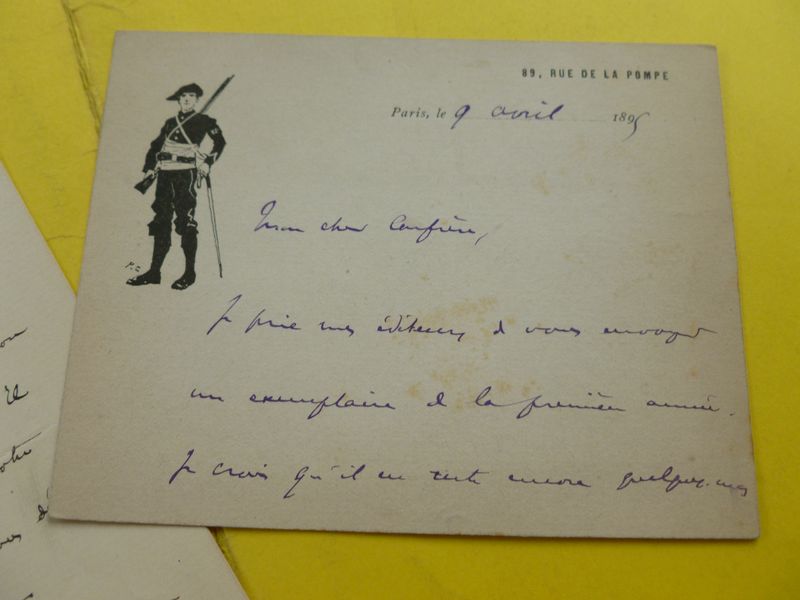 89, RUE DE LA POMPE
Paris, le 9 avril 1895
Mon cher Confrère,
Je prie mes éditeurs de vous envoyer
un exemplaire de la première année.
Je crois qu'il en reste encore quelques-uns